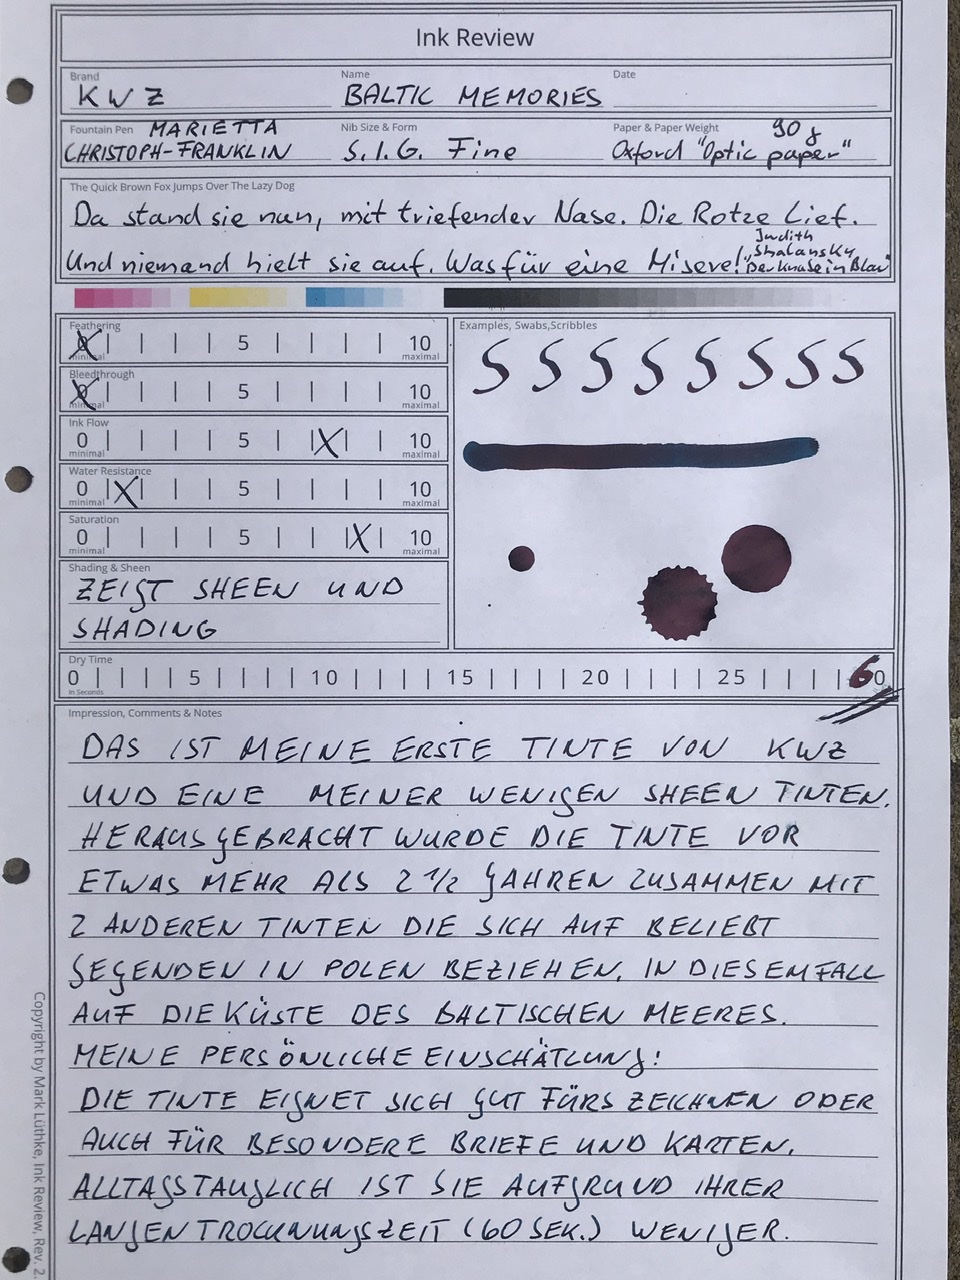 Ink Review
Brand Name Date
KWZ BALTIC MEMORIES
Fountain Pen MARIETTA Nib Size & Form Paper & Paper Weight 90 g
CHRISTOPH-FRANKLIN S.I.G. Fine Oxford "Optic paper"
The Quick Brown Fox Jumps Over The Lazy Dog
Da stand sie nun, mit triefender Nase. Die Rotze lief.
Und niemand hielt sie auf. Was für eine Misere!
Judith
Shalansky
Feathering
0 5 10
minimal maximal
Bleedthrough
0 5 10
minimal maximal
Ink Flow
0 5 10
minimal maximal
Water Resistance
0 5 10
minimal maximal
Saturation
0 5 10
minimal maximal
Shading & Sheen
ZEIGT SHEEN UND
SHADING
Examples, Swabs,Scribbles
S S S S S S S S
Dry Time
0 5 10 15 20 25 60
In Seconds
Impression, Comments & Notes
DAS IST MEINE ERSTE TINTE VON KWZ
UND EINE MEINER WENIGEN SHEEN TINTEN.
HERAUSGEBRACHT WURDE DIE TINTE VOR
ETWAS MEHR ALS 2 1/2 JAHREN ZUSAMMEN MIT
2 ANDEREN TINTEN DIE SICH AUF BELIEBT
GEGENDEN IN POLEN BEZIEHEN. IN DIESEM FALL
AUF DIE KÜSTE DES BALTISCHEN MEERES.
MEINE PERSÖNLICHE EINSCHÄTZUNG:
DIE TINTE EIGNET SICH GUT FÜRS ZEICHNEN ODER
AUCH FÜR BESONDERE BRIEFE UND KARTEN.
ALLTAGSTAUGLICH IST SIE AUFGRUND IHRER
LANGEN TROCKNUNGSZEIT (60 SEK.) WENIGER.
Copyright by Mark Lüthke, Ink Review, Rev. 2.